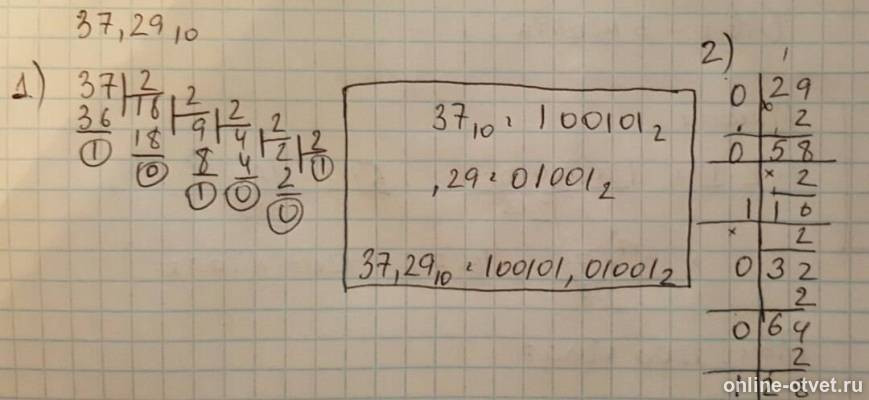 37,29₁₀
1)
37 2
36 18 2
1 18 9 2
0 8 4 2
1 4 2 2
0 2 1
0
37₁₀ = 100101₂
,29 = 01001₂
37,29₁₀ = 100101,01001₂
2)
0 29
2
0 58
× 2
1 16
× 2
0 32
2
0 64
2
1 28
online-otvet.ru